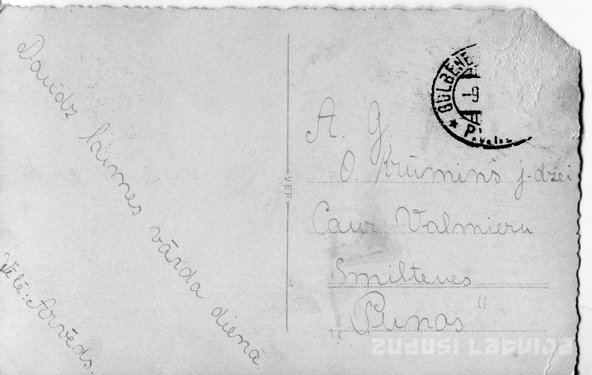 Daudz laimes vārda dienā
Vēlē: Arvēds.
VEF
GULBENE
-9
A. G.
O. Krūmiņš j-dzei
Caur Valmieru
Smiltenes
"Punas"
zudusi Latvija